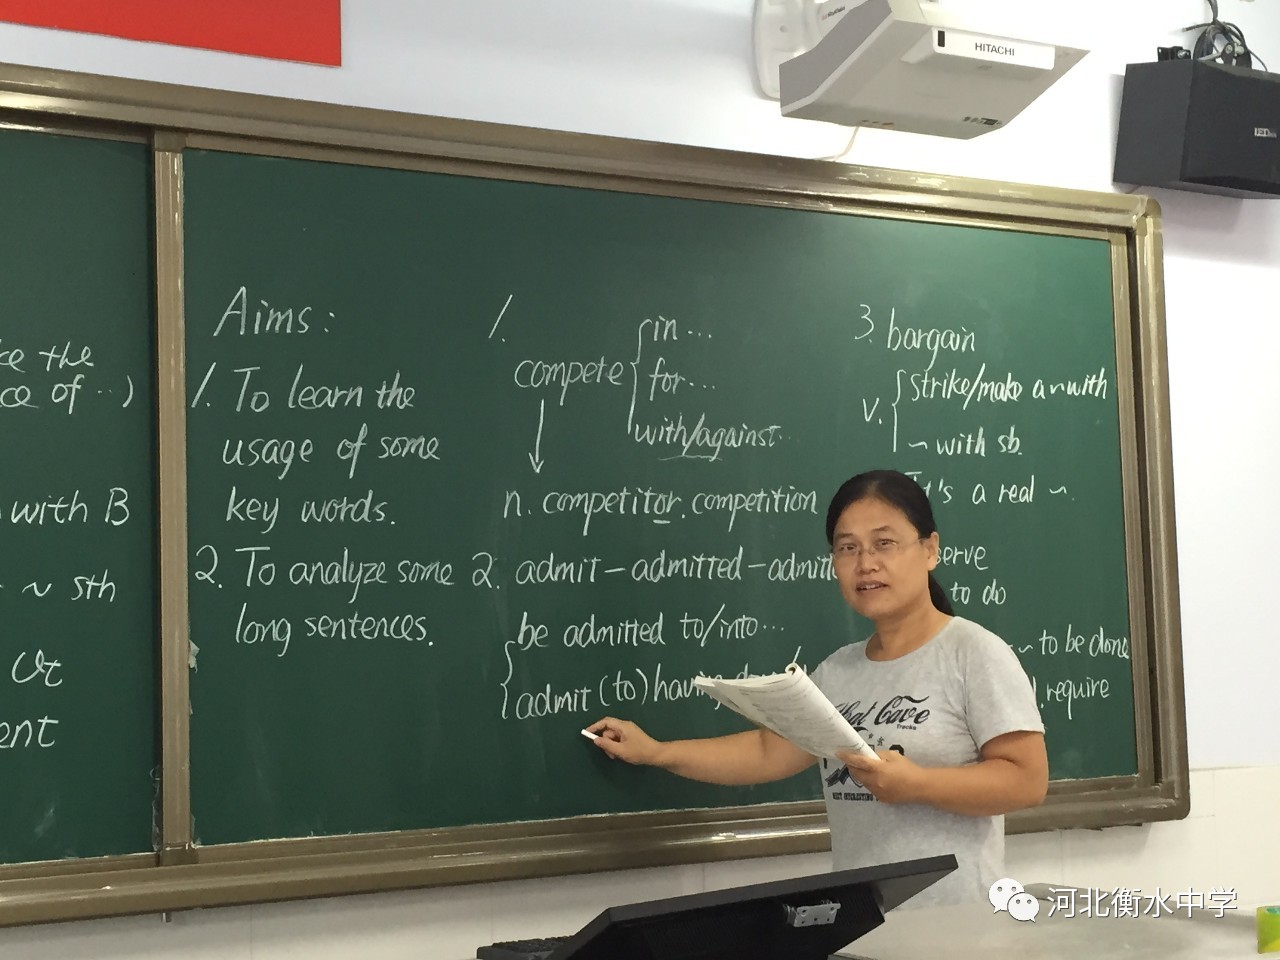 HITACHI
the
of …)
with B
~ sth
vt
Aims:
1. To learn the
usage of some
key words.
2. To analyze some
long sentences.
1.
compete
in …
for …
with/against …
n. competitor. competition
2. admit – admitted –
be admitted to/into …
admit (to) having
3. bargain
v.
strike/make a ~ with
~ with sb.
It's a real ~.
to do
~ to be done
require
河北衡水中学